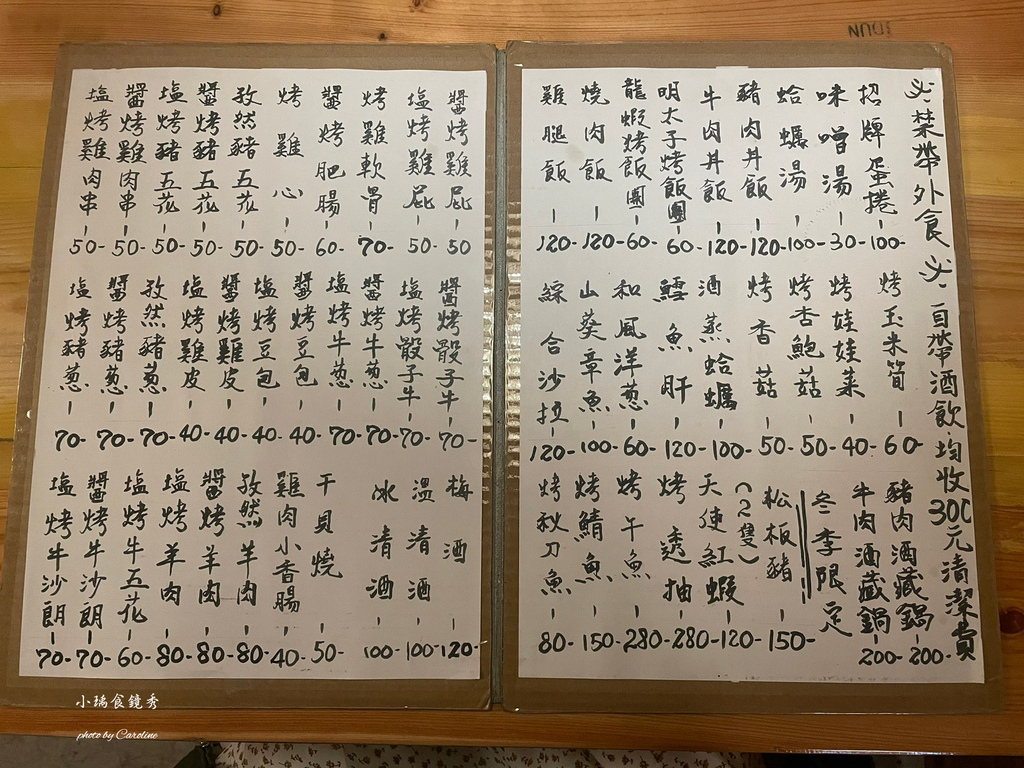 必.禁帶外食 必.自帶酒飲均收300元清潔費
招牌蛋捲-100-
味噌湯-30-
蛤蠣湯-100-
豬肉丼飯-120-
牛肉丼飯-120-
明太子烤飯糰-60-
龍蝦烤飯糰-60-
燒肉飯-120-
雞腿飯-120-
烤玉米筍-60-
烤娃娃菜-40-
烤杏鮑菇-50-
烤香菇-50-
酒蒸蛤蠣-100-
鱈魚肝-120-
和風洋葱-60-
山葵章魚-100-
綜合沙拉-120-
豬肉酒藏鍋-200-
牛肉酒藏鍋-200-
冬季限定
松板豬-150-
天使紅蝦(2隻)-120-
烤透抽-280-
烤午魚-280-
烤鯖魚-150-
烤秋刀魚-80-
醬烤雞屁-50
塩烤雞屁-50-
烤雞軟骨-70-
醬烤肥腸-60-
烤雞心-50-
孜然豬五花-50-
醬烤豬五花-50-
塩烤豬五花-50-
醬烤雞肉串-50-
塩烤雞肉串-50-
醬烤骰子牛-70-
塩烤骰子牛-70-
醬烤牛葱-70-
塩烤牛葱-70-
醬烤豆包-40-
塩烤豆包-40-
醬烤雞皮-40-
塩烤雞皮-40-
孜然豬葱-70-
醬烤豬葱-70-
塩烤豬葱-70-
梅酒-120-
溫清酒-100-
冰清酒-100-
干貝燒-50-
雞肉小香腸-40-
孜然羊肉-80-
醬烤羊肉-80-
塩烤羊肉-80-
塩烤牛五花-60-
醬烤牛沙朗-70-
塩烤牛沙朗-70-
小瑀食鏡秀
photo by Caroline